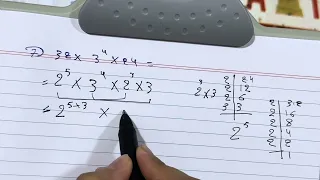 7) 32 × 3⁴ × 24 =
= 2⁵ × 3⁴ × 2³ × 3
= 2⁵⁺³ ×
2³ × 3
2 | 24
2 | 12
2 | 6
3 | 3
2⁵
2 | 32
2 | 16
2 | 8
2 | 4
2 | 2
| 1